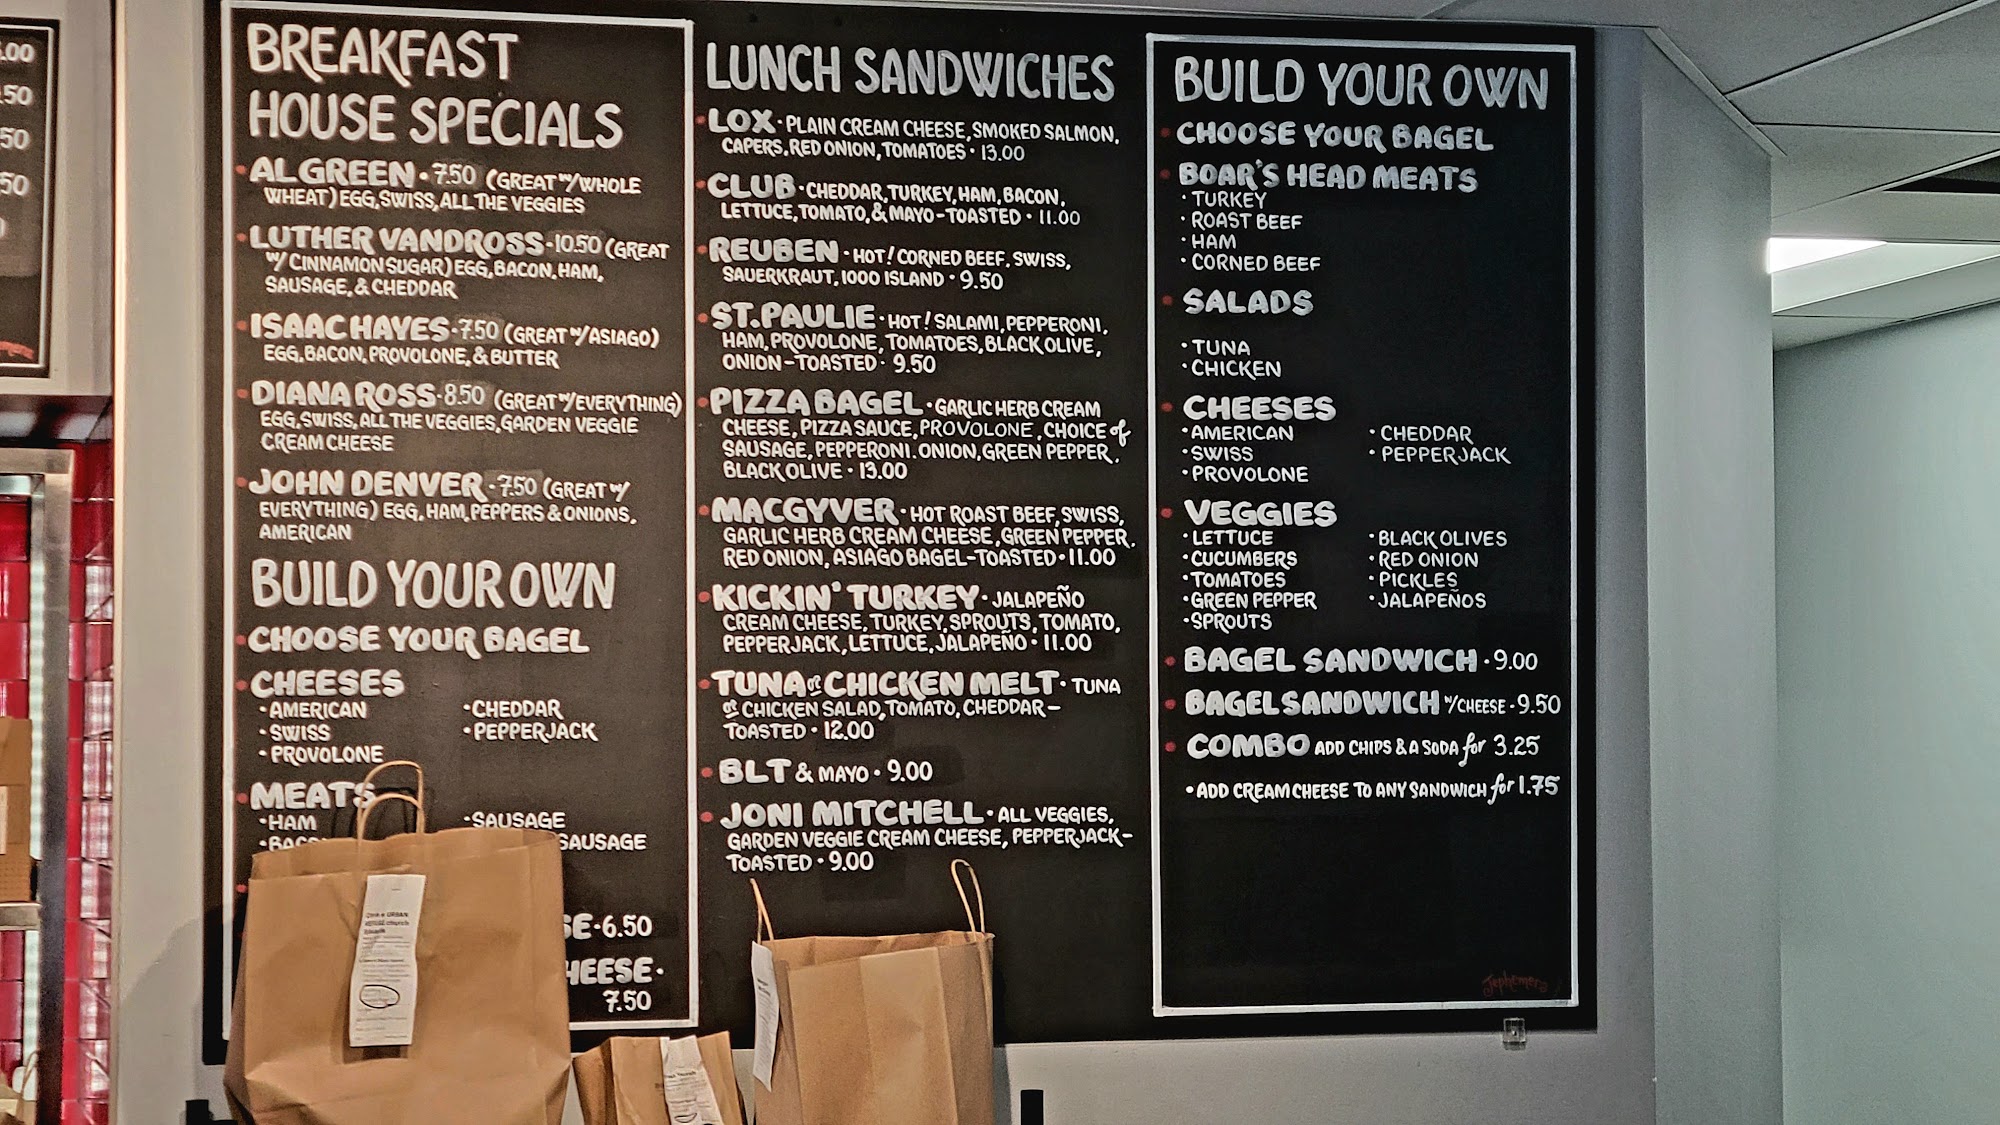 .00
.50
50
50
BREAKFAST
HOUSE SPECIALS
AL GREEN · 7.50 (GREAT W/WHOLE
WHEAT) EGG, SWISS, ALL THE VEGGIES
LUTHER VANDROSS · 10.50 (GREAT
W/ CINNAMON SUGAR) EGG, BACON, HAM,
SAUSAGE, & CHEDDAR
ISAAC HAYES · 7.50 (GREAT W/ASIAGO)
EGG, BACON, PROVOLONE, & BUTTER
DIANA ROSS · 8.50 (GREAT W/EVERYTHING)
EGG, SWISS, ALL THE VEGGIES, GARDEN VEGGIE
CREAM CHEESE
JOHN DENVER · 7.50 (GREAT W/
EVERYTHING) EGG, HAM, PEPPERS & ONIONS,
AMERICAN
BUILD YOUR OWN
CHOOSE YOUR BAGEL
CHEESES
· AMERICAN · CHEDDAR
· SWISS · PEPPERJACK
· PROVOLONE
MEATS
· HAM · SAUSAGE
SAUSAGE
SE · 6.50
HEESE ·
7.50
LUNCH SANDWICHES
LOX · PLAIN CREAM CHEESE, SMOKED SALMON,
CAPERS, RED ONION, TOMATOES · 13.00
CLUB · CHEDDAR, TURKEY, HAM, BACON,
LETTUCE, TOMATO, & MAYO - TOASTED · 11.00
REUBEN · HOT! CORNED BEEF, SWISS,
SAUERKRAUT, 1000 ISLAND · 9.50
ST. PAULIE · HOT! SALAMI, PEPPERONI,
HAM, PROVOLONE, TOMATOES, BLACK OLIVE,
ONION - TOASTED · 9.50
PIZZA BAGEL · GARLIC HERB CREAM
CHEESE, PIZZA SAUCE, PROVOLONE, CHOICE of
SAUSAGE, PEPPERONI, ONION, GREEN PEPPER,
BLACK OLIVE · 13.00
MACGYVER · HOT ROAST BEEF, SWISS,
GARLIC HERB CREAM CHEESE, GREEN PEPPER,
RED ONION, ASIAGO BAGEL - TOASTED · 11.00
KICKIN' TURKEY · JALAPEÑO
CREAM CHEESE, TURKEY, SPROUTS, TOMATO,
PEPPERJACK, LETTUCE, JALAPEÑO · 11.00
TUNA or CHICKEN MELT · TUNA
or CHICKEN SALAD, TOMATO, CHEDDAR -
TOASTED · 12.00
BLT & MAYO · 9.00
JONI MITCHELL · ALL VEGGIES,
GARDEN VEGGIE CREAM CHEESE, PEPPERJACK -
TOASTED · 9.00
BUILD YOUR OWN
CHOOSE YOUR BAGEL
BOAR'S HEAD MEATS
· TURKEY
· ROAST BEEF
· HAM
· CORNED BEEF
SALADS
· TUNA
· CHICKEN
CHEESES
· AMERICAN · CHEDDAR
· SWISS · PEPPERJACK
· PROVOLONE
VEGGIES
· LETTUCE · BLACK OLIVES
· CUCUMBERS · RED ONION
· TOMATOES · PICKLES
· GREEN PEPPER · JALAPEÑOS
· SPROUTS
BAGEL SANDWICH · 9.00
BAGEL SANDWICH W/CHEESE · 9.50
COMBO ADD CHIPS & A SODA for 3.25
· ADD CREAM CHEESE TO ANY SANDWICH for 1.75